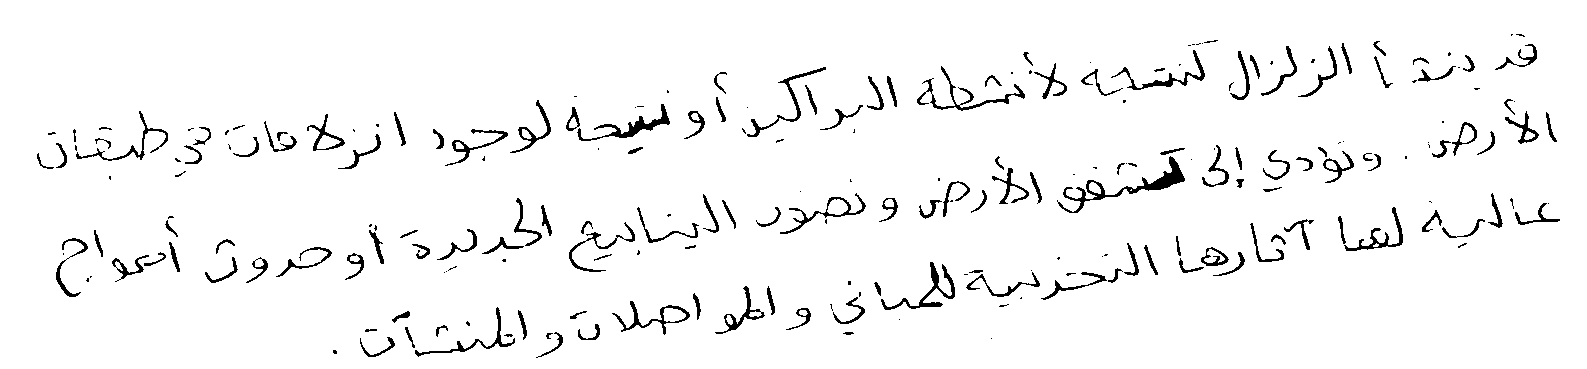 قد ينشأ الزلزال كنتيجة لأنشطة البراكين أو نتيجة لوجود انزلاقات في طبقات
الأرض. وتؤدي إلى تشقق الأرض ونضوب الينابيع الجديدة أو حدوث أمواج
عالية لها آثارها التخريبية للمباني والمواصلات والمنشآت.